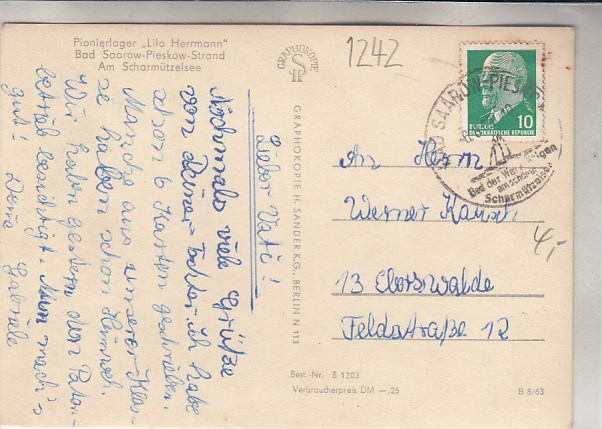 Pionierlager „Lilo Herrmann"
Bad Saarow-Pieskow-Strand
Am Scharmützelsee
Lieber Vati!
Nochmals viele Grüße
von Deiner Tochter. ich habe
schon 6 Karten geschrieben.
Manche aus unserer Klas-
se haben schon Heimweh.
Wir haben gestern den Paten-
betrieb besichtigt. Nun mach's
gut! Deine Gabriele
GRAPHOKOPIE
H S
GRAPHOKOPIE H. SANDER K.G., BERLIN N 113
1242
DEUTSCHE
DEMOKRATISCHE REPUBLIK
10
BAD SAAROW-PIESKOW
Bad der Werktätigen
am schönen
Scharmützelsee
An Herrn
Werner
13 Eberswalde
Feldstraße 12
4,-
Best.-Nr. B 1203
Verbraucherpreis DM —,25
B 8/63